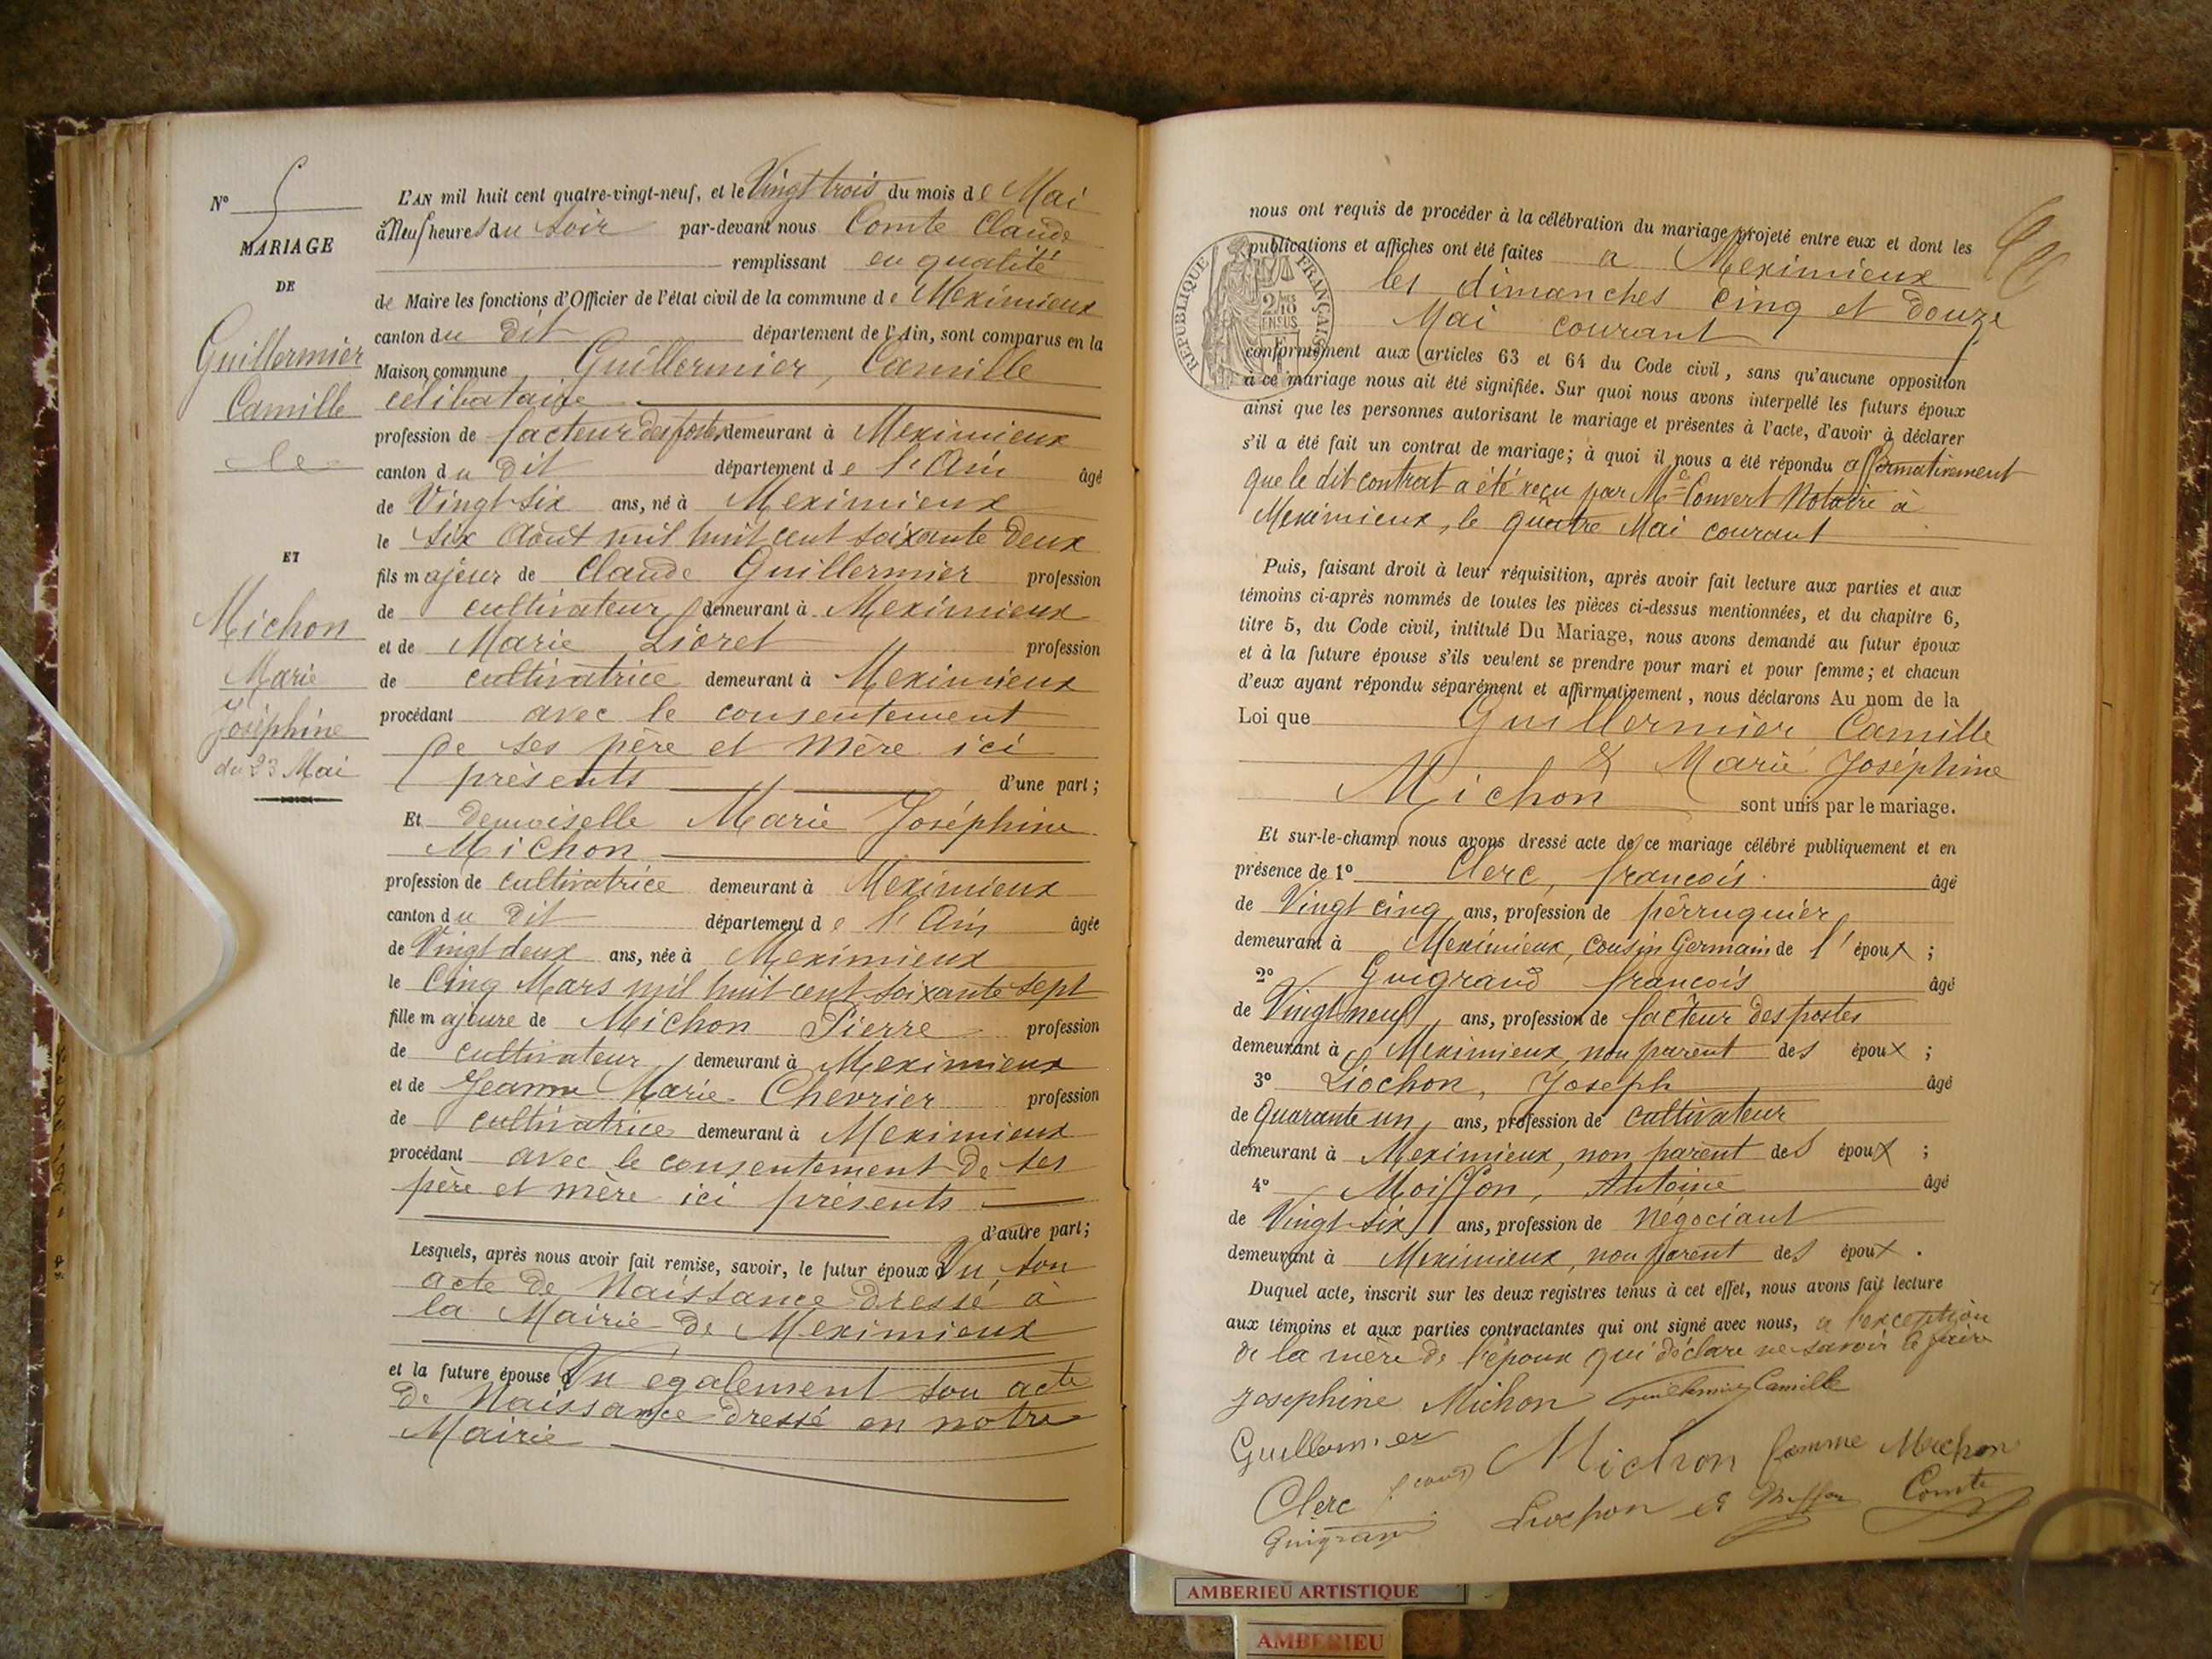 N° 5
MARIAGE
DE
Guillermier
Camille
le
ET
Michon
Marie
Joséphine
du 23 Mai
L'AN mil huit cent quatre-vingt-neuf, et le Vingt trois du mois de Mai
à Neuf heures du Soir par-devant nous Comte Claude
remplissant en qualité
de Maire les fonctions d'Officier de l'état civil de la commune de Meximieux
canton du dit département de l'Ain, sont comparus en la
Maison commune Guillermier, Camille
célibataire
profession de facteur des postes demeurant à Meximieux
canton du dit département de l'Ain âgé
de Vingt Six ans, né à Meximieux
le Six Août mil huit cent soixante Deux
fils majeur de Claude Guillermier profession
de cultivateur, demeurant à Meximieux
et de Marie Lioret profession
de cultivatrice demeurant à Meximieux
procédant avec le consentement
de ses père et mère ici
présents d'une part ;
Et demoiselle Marie Joséphine
Michon
profession de cultivatrice demeurant à Meximieux
canton du dit département de l'Ain âgée
de Vingt deux ans, née à Meximieux
le Cinq Mars mil huit cent soixante sept
fille majeure de Michon Pierre profession
de cultivateur, demeurant à Meximieux
et de Jeanne Marie Chevrier profession
de cultivatrice demeurant à Meximieux
procédant avec le consentement de ses
père et mère ici présents
d'autre part ;
Lesquels, après nous avoir fait remise, savoir, le futur époux Vu son
acte de Naissance dressé à
la Mairie de Meximieux
et la future épouse Vu également son acte
de Naissance dressé en notre
Mairie
nous ont requis de procéder à la célébration du mariage projeté entre eux et dont les
publications et affiches ont été faites a Meximieux
les dimanches cinq et douze
Mai courant
RÉPUBLIQUE FRANÇAISE
conformément aux articles 63 et 64 du Code civil, sans qu'aucune opposition
à ce mariage nous ait été signifiée. Sur quoi nous avons interpellé les futurs époux
ainsi que les personnes autorisant le mariage et présentes à l'acte, d'avoir à déclarer
s'il a été fait un contrat de mariage ; à quoi il nous a été répondu affirmativement
que le dit contrat a été reçu par Me Convert Notaire à
Meximieux, le quatre Mai courant
Puis, faisant droit à leur réquisition, après avoir fait lecture aux parties et aux
témoins ci-après nommés de toutes les pièces ci-dessus mentionnées, et du chapitre 6,
titre 5, du Code civil, intitulé Du Mariage, nous avons demandé au futur époux
et à la future épouse s'ils veulent se prendre pour mari et pour femme ; et chacun
d'eux ayant répondu séparément et affirmativement, nous déclarons Au nom de la
Loi que Guillermier Camille
& Marie Joséphine
Michon sont unis par le mariage.
Et sur-le-champ nous avons dressé acte de ce mariage célébré publiquement et en
présence de 1° Clerc, françois âgé
de Vingt cinq ans, profession de perruquier,
demeurant à Meximieux, cousin Germain de l'époux ;
2° Guigrand françois âgé
de Vingt neuf, ans, profession de facteur des postes
demeurant à Meximieux, non parent des époux ;
3° Liochon, Joseph âgé
de Quarante un, ans, profession de cultivateur
demeurant à Meximieux, non parent des époux ;
4° Moisson, Antoine âgé
de Vingt six ans, profession de négociant
demeurant à Meximieux, non parent des époux.
Duquel acte, inscrit sur les deux registres tenus à cet effet, nous avons fait lecture
aux témoins et aux parties contractantes qui ont signé avec nous, a l'exception
de la mère de l'époux qui déclare ne savoir le faire
Josephine Michon Guillermier Camille
Guillermier Michon femme Michon
Clerc Comte
Guigrand
AMBERIEU ARTISTIQUE
AMBERIEU